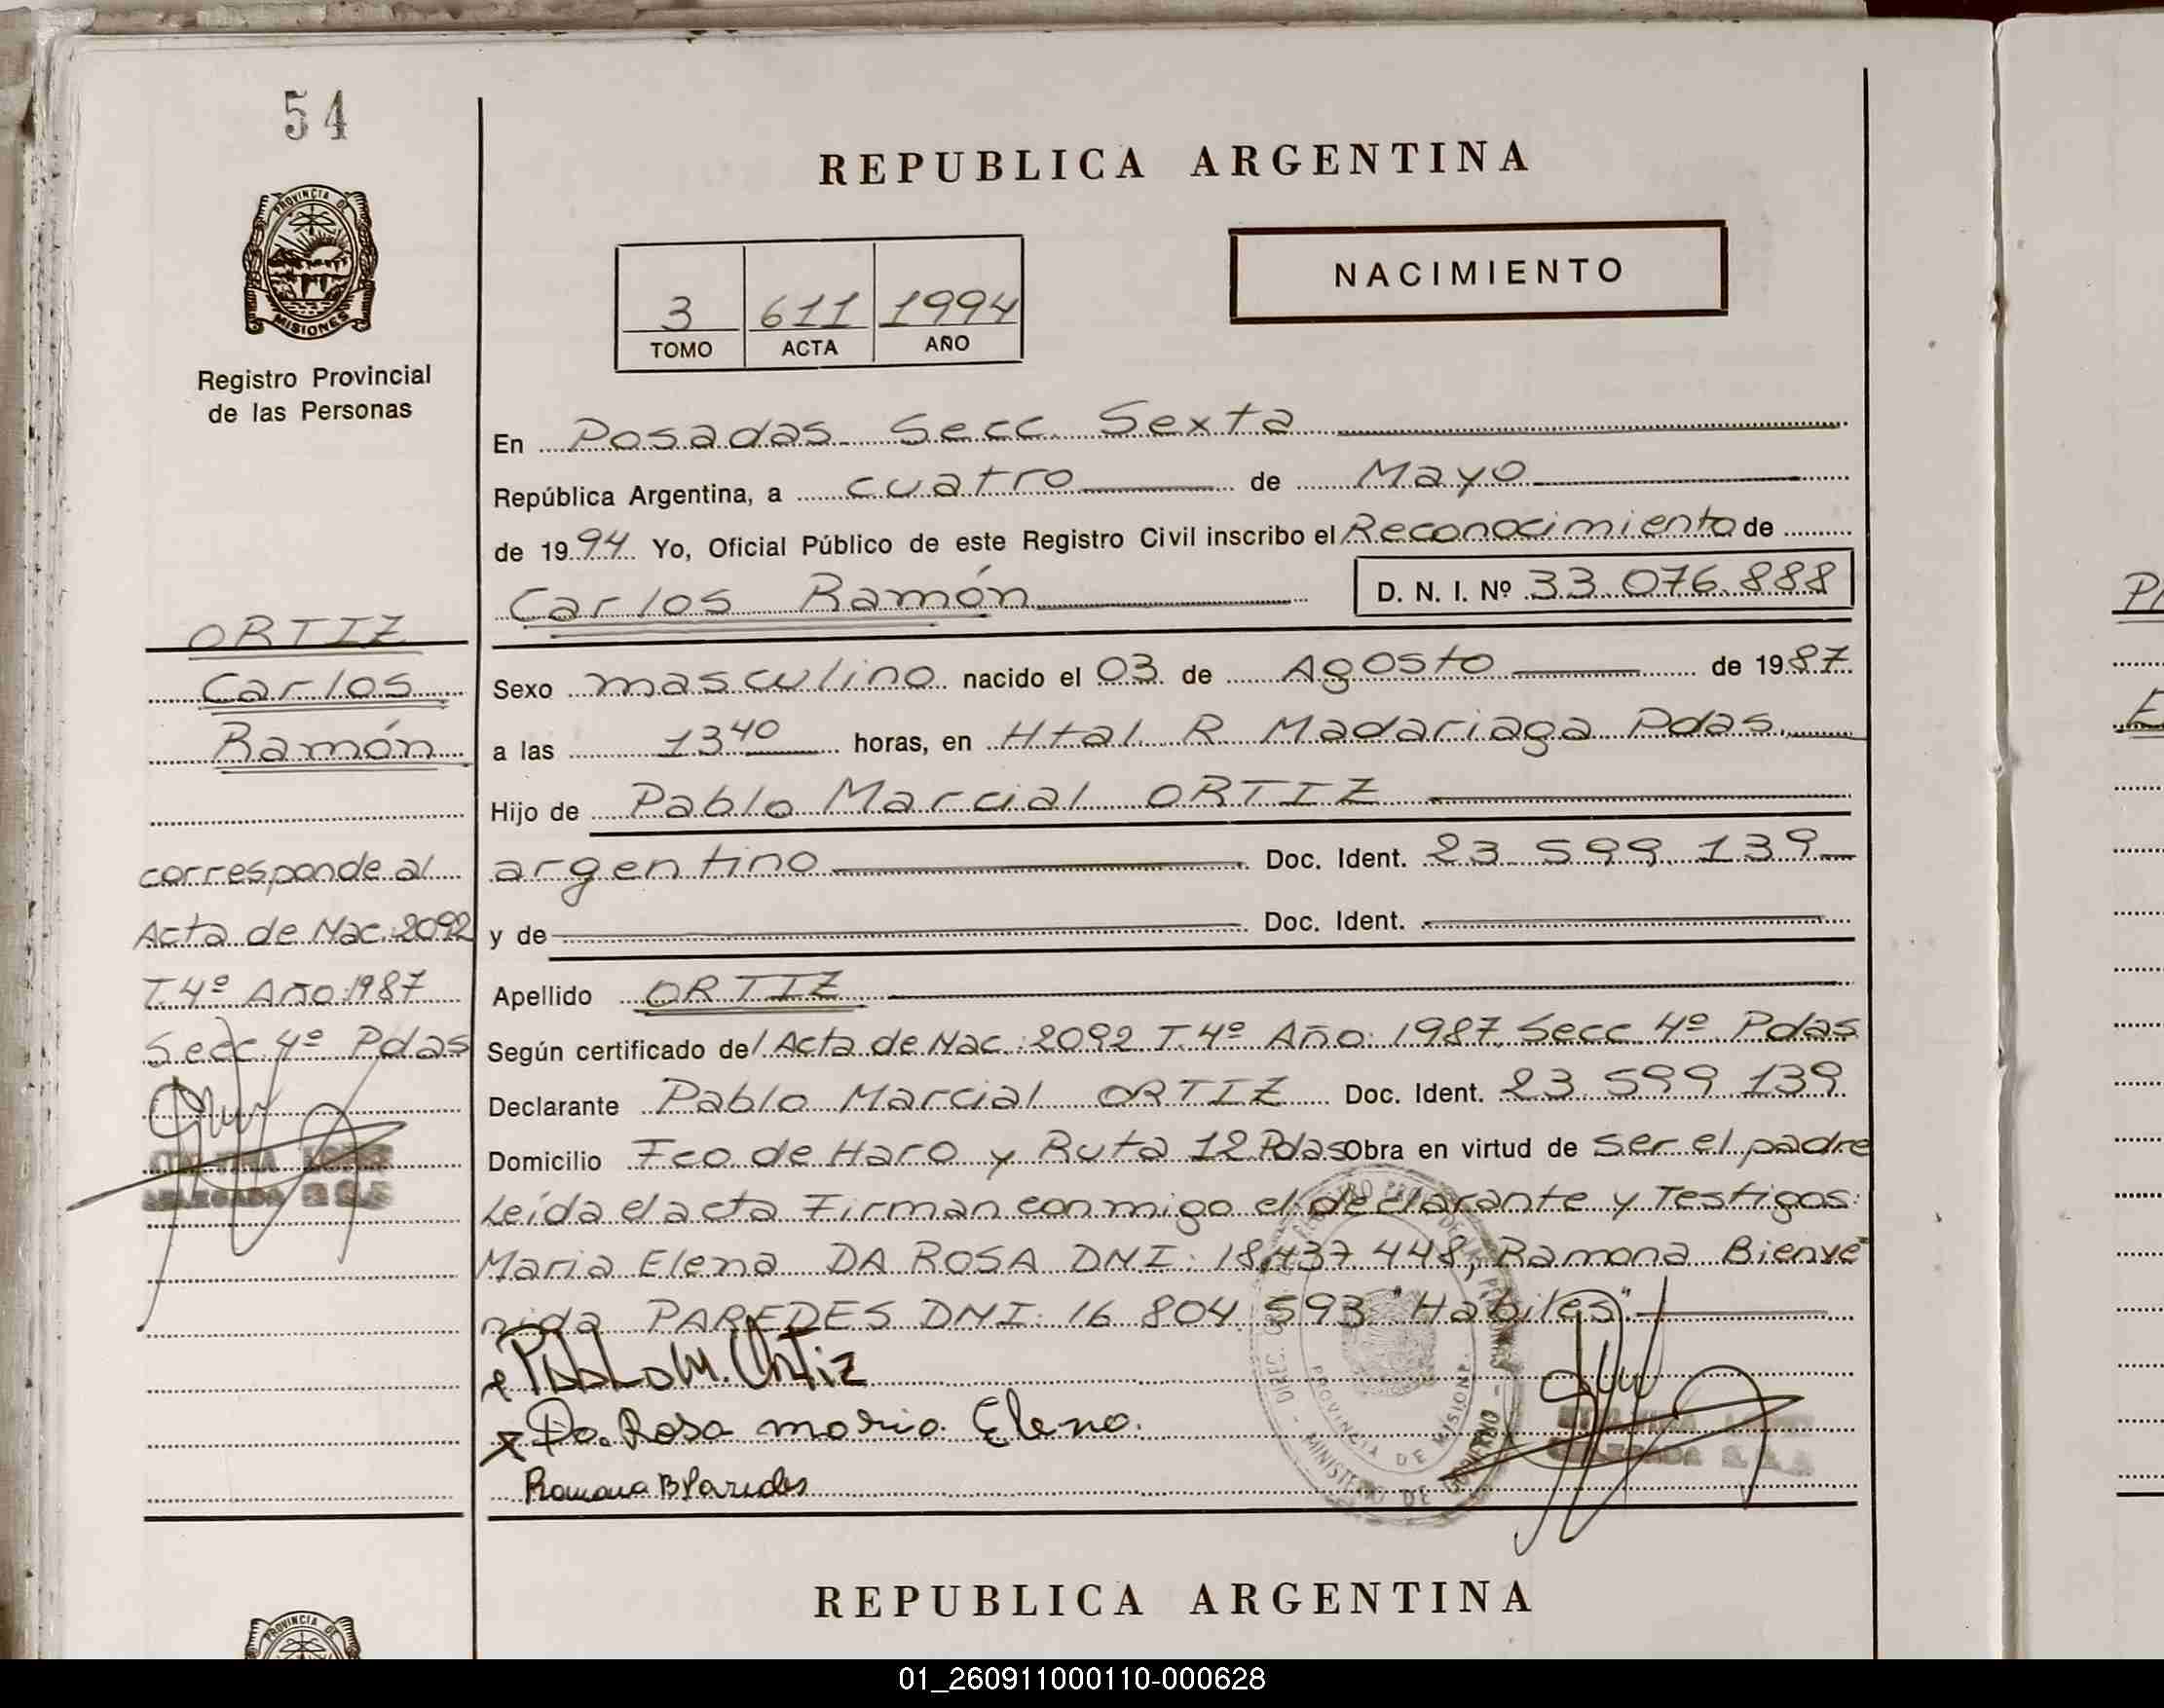 54
PROVINCIA DE
MISIONES
Registro Provincial
de las Personas
ORTIZ
Carlos
Ramón
corresponde al
Acta de Nac.:2092
T.4º Año:1987
Secc. 4º Pdas
REPUBLICA ARGENTINA
3 611 1994
TOMO ACTA AÑO
NACIMIENTO
En Posadas Secc. Sexta
República Argentina, a cuatro de Mayo
de 1994 Yo, Oficial Público de este Registro Civil inscribo el Reconocimiento de
Carlos Ramón D. N. I. Nº 33.076.888
Sexo masculino nacido el 03 de Agosto de 1987
a las 13 40 horas, en Htal. R. Madariaga Pdas.
Hijo de Pablo Marcial ORTIZ
argentino Doc. Ident. 23.599.139
y de Doc. Ident.
Apellido ORTIZ
Según certificado del Acta de Nac.:2092 T.4º Año: 1987. Secc 4º Pdas
Declarante Pablo Marcial ORTIZ Doc. Ident. 23.599.139
Domicilio Fco. de Haro y Ruta 12 Pdas Obra en virtud de ser el padre
Leída el acta Firman conmigo el declarante y Testigos:
Maria Elena DA ROSA DNI: 18.437.448, Ramona Bienve
nida PAREDES DNI: 16.804.593 "Hábiles".
Pablo M. Ortiz
Da. Rosa maria Elena.
Ramona B Paredes
PROVINCIA DE MISIONES
MINISTERIO DE GOBIERNO
REPUBLICA ARGENTINA
PROVINCIA DE
01_260911000110-000628